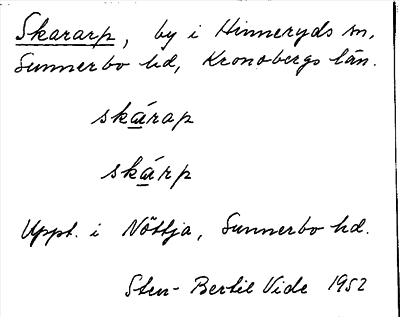 Skararp, by i Hinneryds sn,
Sunnerbo hd, Kronobergs län.
skárap
skárp
Uppt. i Nöttja, Sunnerbo hd.
Sten-Bertil Vide 1952